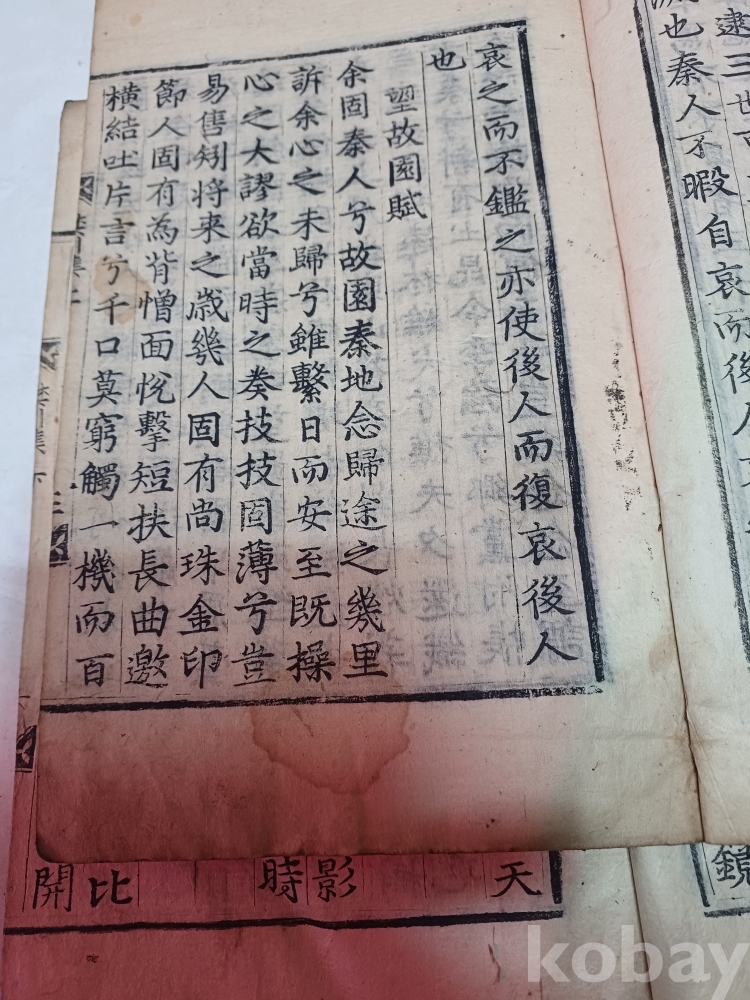 逮三世
也秦人不暇自哀而後人
哀之而不鑑之亦使後人而復哀後人
也
望故園賦
余固秦人兮故園秦地念歸途之幾里
訴余心之未歸兮雖繫日而安至既操
心之大謬欲當時之奏技技固薄兮豈
易售矧将来之歳幾人固有尚珠金印
節人固有為背憎面悅擊短扶長曲邀
橫結吐片言兮千口莫窮觸一機而百
天
影
時
比
開
kobay